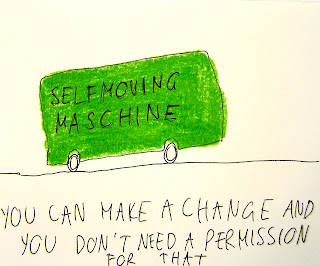 SELFMOVING
MASCHINE
YOU CAN MAKE A CHANGE AND
YOU DON'T NEED A PERMISSION
FOR THAT